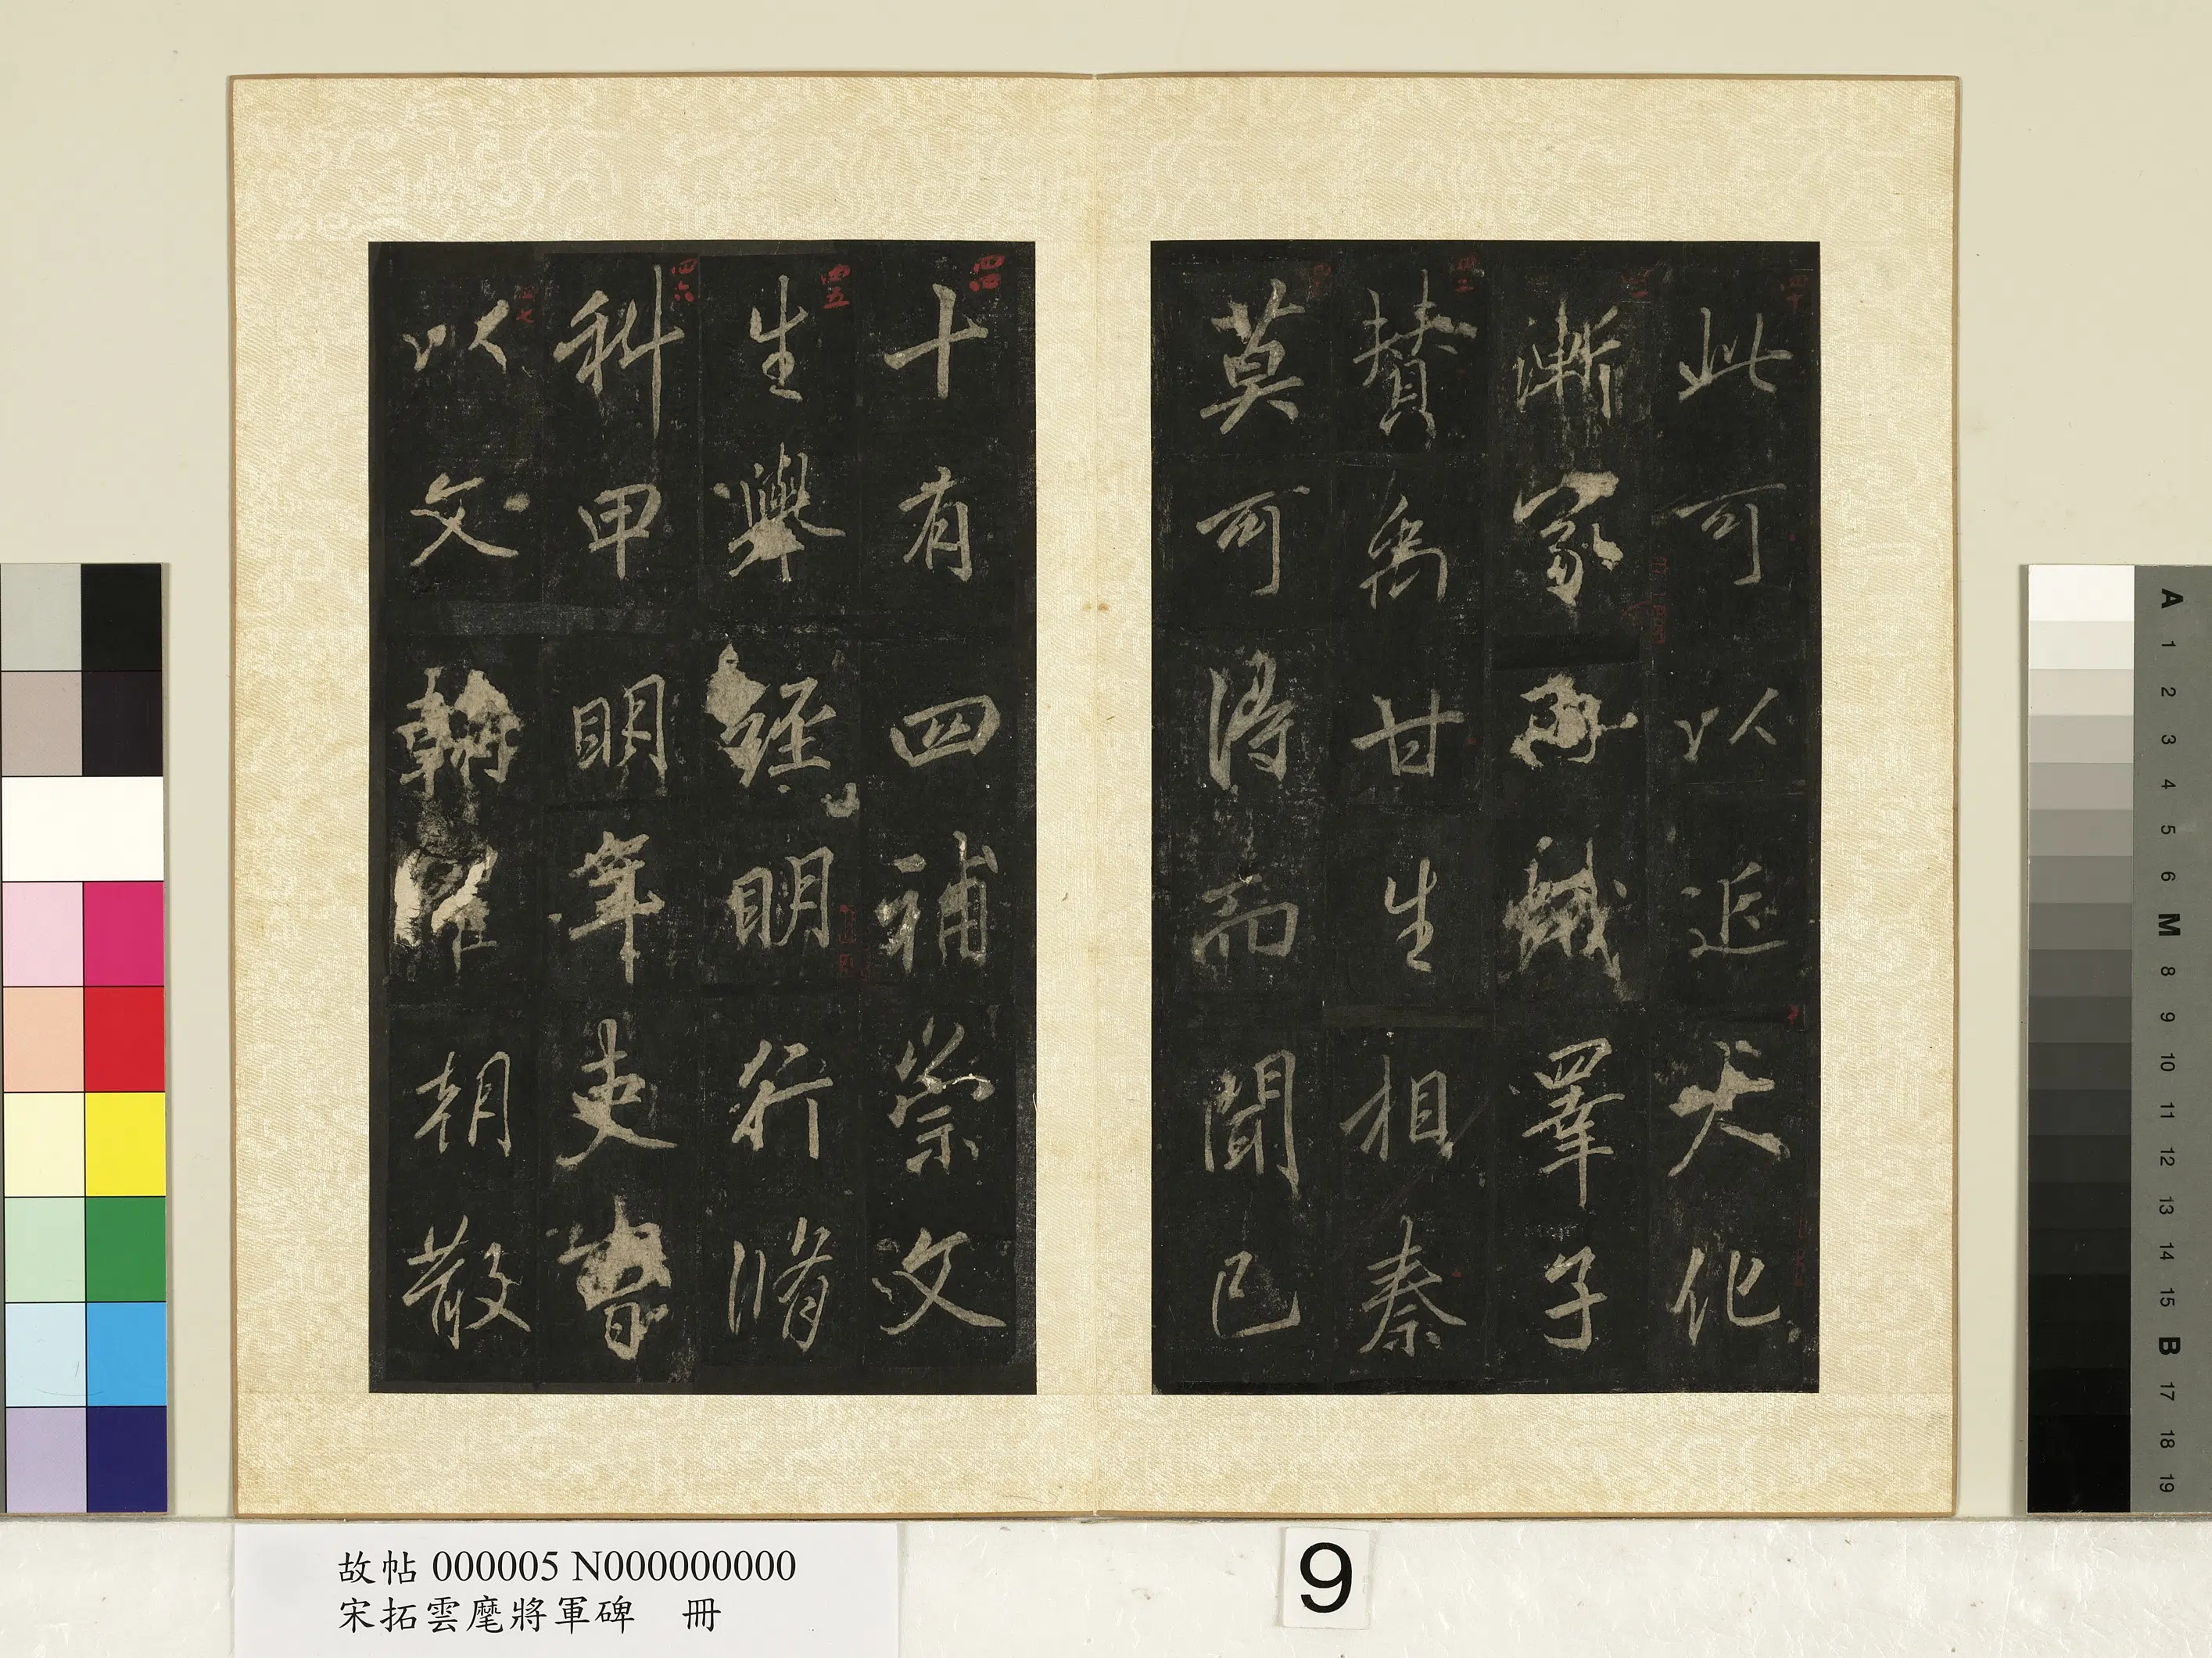 此可以近大化
漸家蛾睪子
贊禹甘生相秦
莫可得而聞已
四四
十有四補崇文
四五
生舉經明行脩
四六
科甲明年吏曹
四七
以文翰擢朝散
故帖 000005 N000000000
宋拓雲麾將軍碑 冊
9
A 1 2 3 4 5 6 M 8 9 10 11 12 13 14 15 B 17 18 19